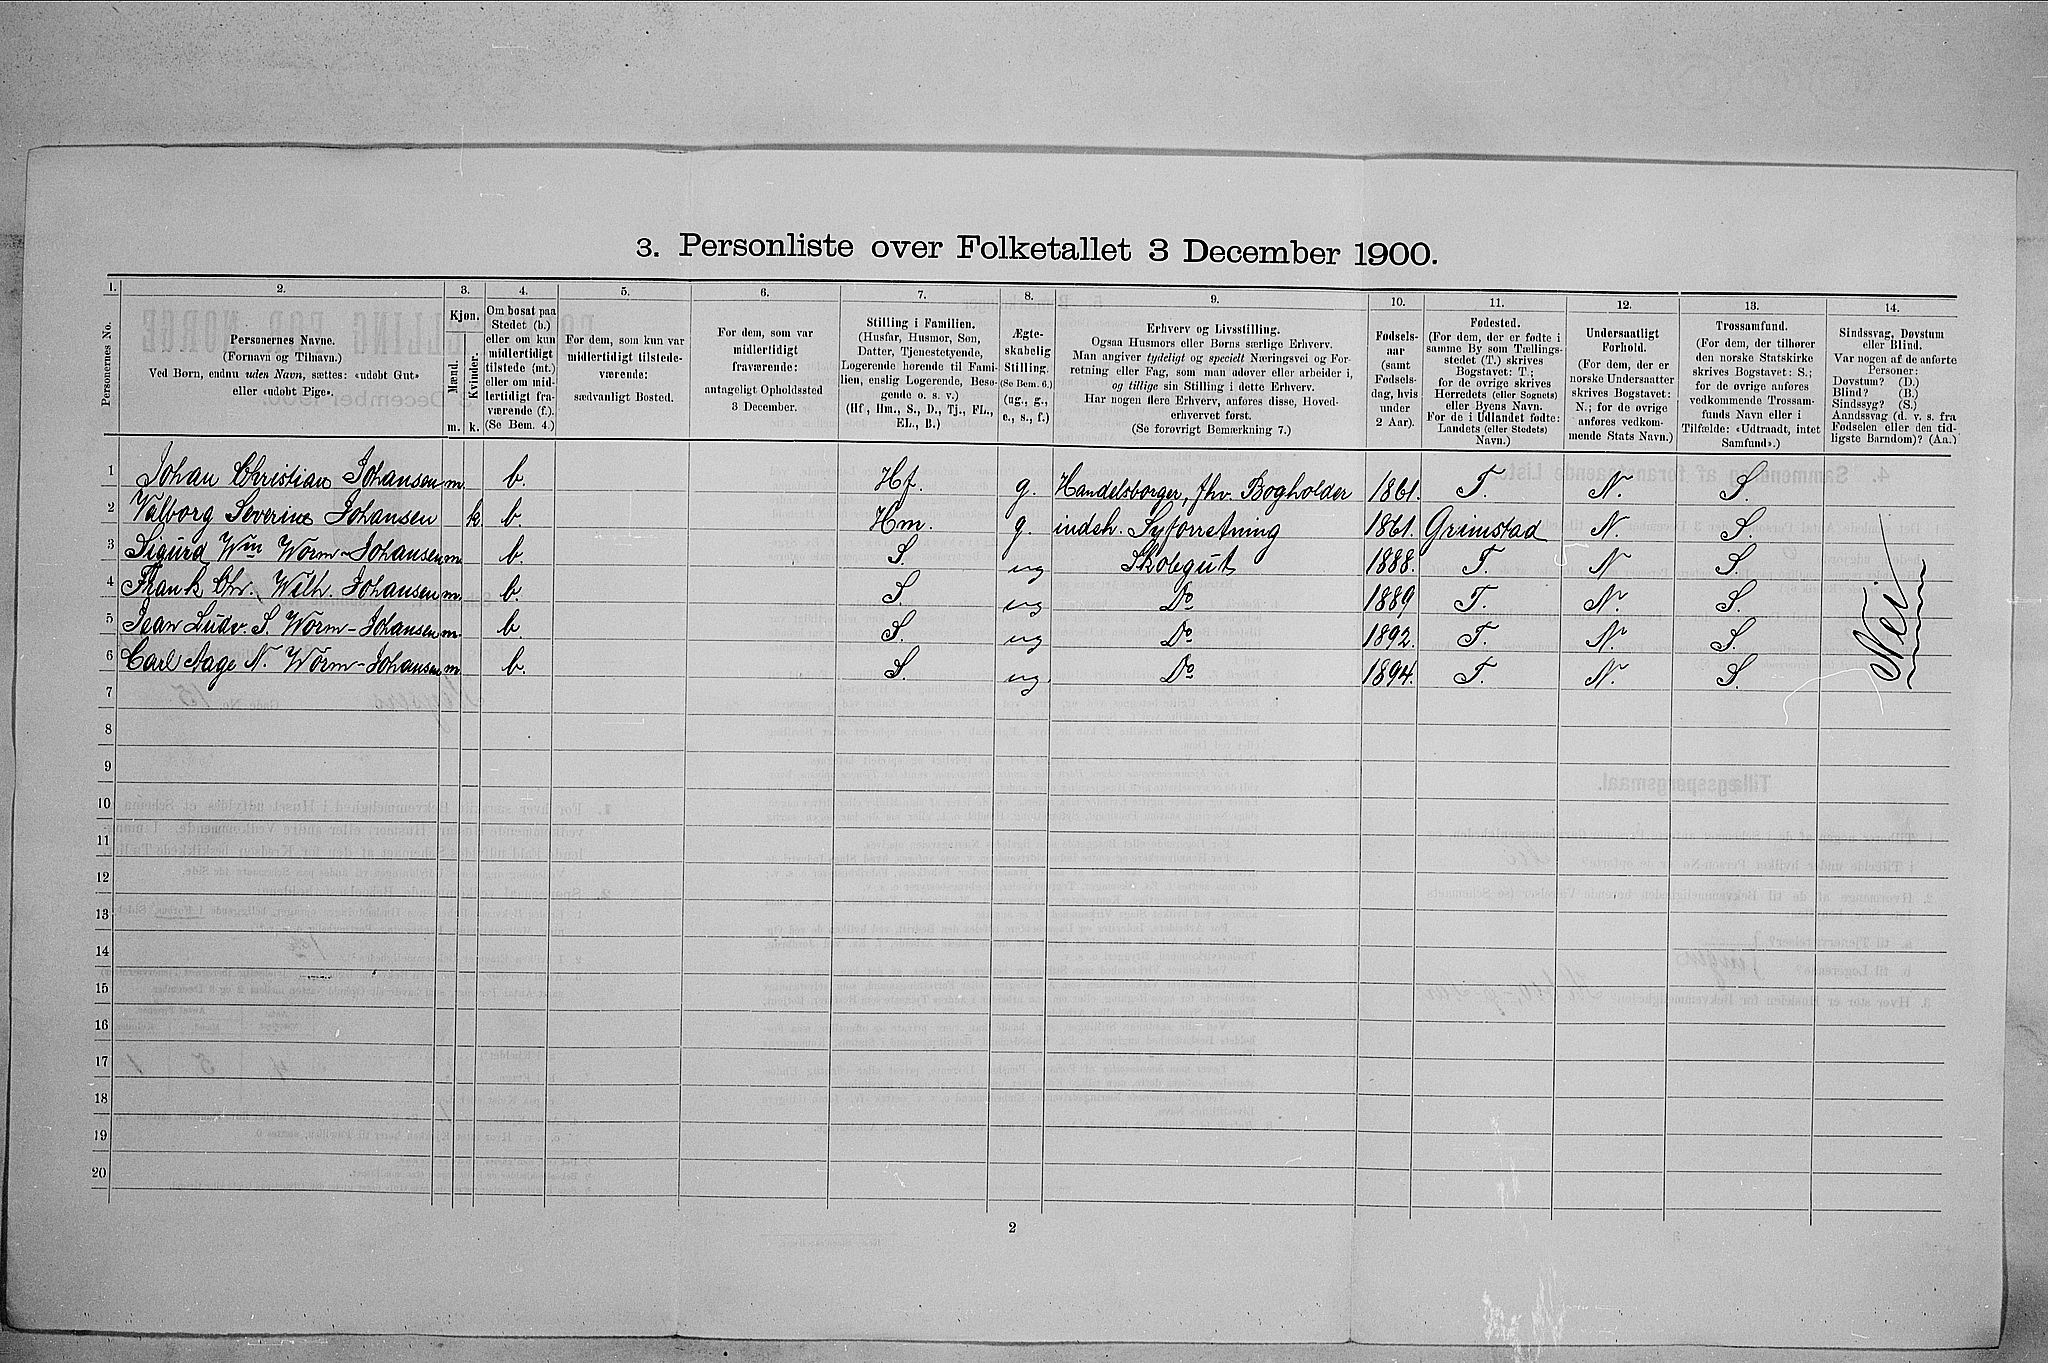 3. Personliste over Folketallet 3 December 1900.
1. 2. 3. 4. 5. 6. 7. 8. 9. 10. 11. 12. 13. 14.
Personernes No.
Personernes Navne.
(Fornavn og Tilnavn.)
Ved Børn, endnu uden Navn, sættes: «udøbt Gut»
eller «udøbt Pige».
Kjøn.
Mænd. Kvinder.
m. k.
Om bosat paa
Stedet (b.)
eller om kun
midlertidigt
tilstede (mt.)
eller om mid-
lertidigt fra-
værende (f.).
(Se Bem. 4.)
For dem, som kun var
midlertidigt tilstede-
værende:
sædvanligt Bosted.
For dem, som var
midlertidigt
fraværende:
antageligt Opholdssted
3 December.
Stilling i Familien.
(Husfar, Husmor, Søn,
Datter, Tjenestetyende,
Logerende hørende til Fami-
lien, enslig Logerende, Besø-
gende o. s. v.)
(Hf., Hm., S., D., Tj., FL.,
EL., B.)
Ægte-
skabelig
Stilling.
(Se Bem. 6.)
(ug., g.,
e., s., f.)
Erhverv og Livsstilling.
Ogsaa Husmors eller Børns særlige Erhverv.
Man angiver tydeligt og specielt Næringsvei og For-
retning eller Fag, som man udøver eller arbeider i,
og tillige sin Stilling i dette Erhverv.
Har nogen flere Erhverv, anføres disse, Hoved-
erhvervet først.
(Se forøvrigt Bemærkning 7.)
Fødsels-
aar
(samt
Fødsels-
dag, hvis
under
2 Aar).
Fødested.
(For dem, der er fødte i
samme By som Tællings-
stedet (T.) skrives
Bogstavet: T.;
for de øvrige skrives
Herredets (eller Sognets)
eller Byens Navn.
For de i Udlandet fødte:
Landets (eller Stedets)
Navn.)
Undersaatligt
Forhold.
(For dem, der er
norske Undersaatter
skrives Bogstavet:
N.; for de øvrige
anføres vedkom-
mende Stats Navn.)
Trossamfund.
(For dem, der tilhører
den norske Statskirke
skrives Bogstavet: S.;
for de øvrige anføres
vedkommende Trossam-
funds Navn eller i
Tilfælde: «Udtraadt, intet
Samfund».)
Sindssvag, Døvstum
eller Blind.
Var nogen af de anførte
Personer:
Døvstum? (D.)
Blind? (B.)
Sindssyg? (S.)
Aandssvag (d. v. s. fra
Fødselen eller den tid-
ligste Barndom)? (Aa.)
1 Johan Christian Johansen m. b. Hf. g. Handelsborger, fhv. Bogholder 1861. T. N. S.
2 Valborg Severine Johansen k. b. Hm. g. indeh. Syforretning 1861. Grimstad N. S.
3 Sigurd Wm Worm-Johansen m. b. S. ug Skolegut 1888. T. N S.
4 Frank Chr. Wilh. Johansen m. b. S. ug Do 1889 T. N. S.
5 Jean Ludv. S. Worm-Johansen m. b. S. ug Do 1892. T. N. S.
6 Carl Aage N. Worm-Johansen m. b. S. ug Do 1894. T. N. S.
Nei
7
8
9
10
11
12
13
14
15
16
17
18
19
20
2